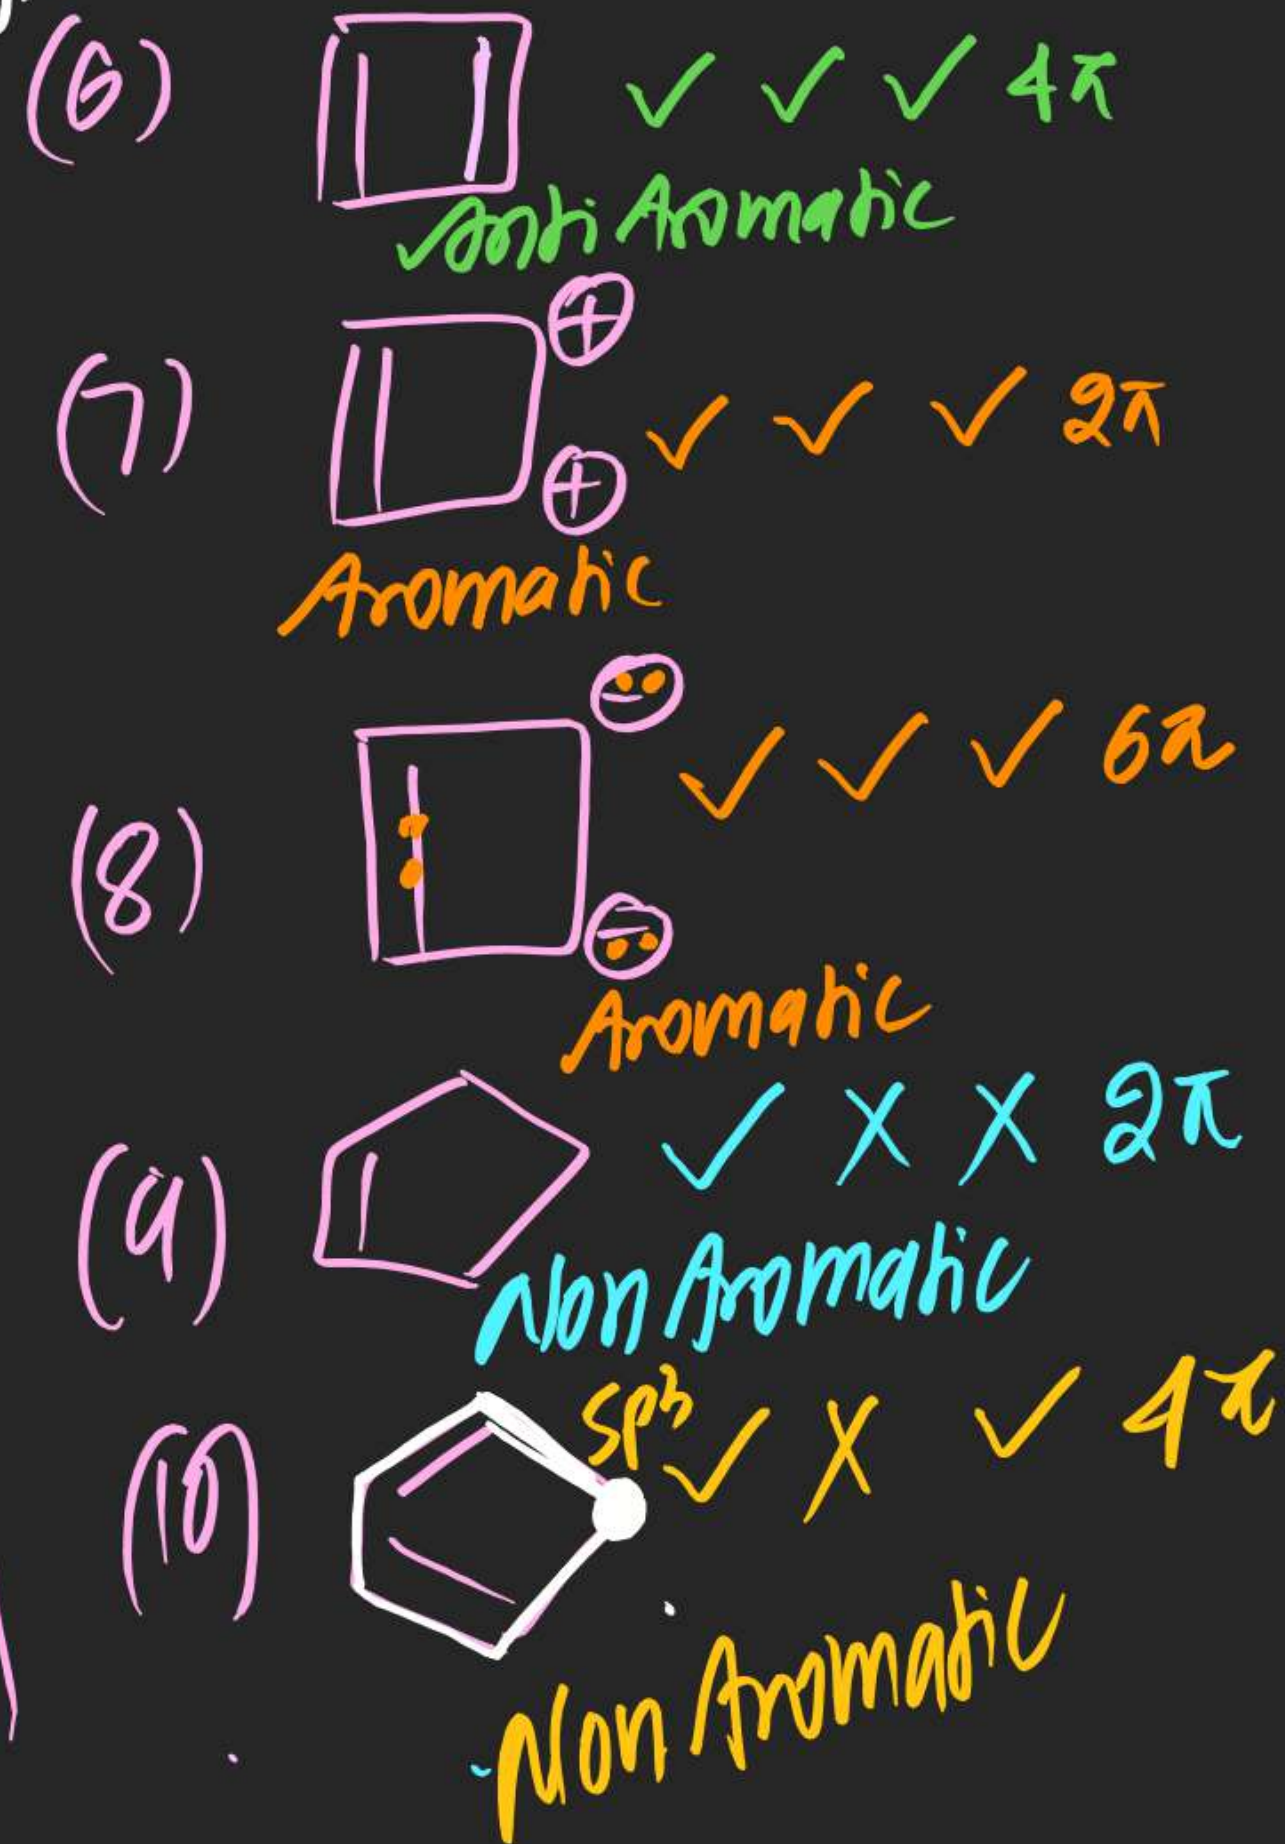 (6) ✓ ✓ ✓ 4π
Anti Aromatic
(7) ⊕ ⊕ ✓ ✓ ✓ 2π
Aromatic
(8) ⊖ ⊖ ✓ ✓ ✓ 6π
Aromatic
(9) ✓ X X 2π
Non Aromatic
(10) sp³ ✓ X ✓ 4π
Non Aromatic